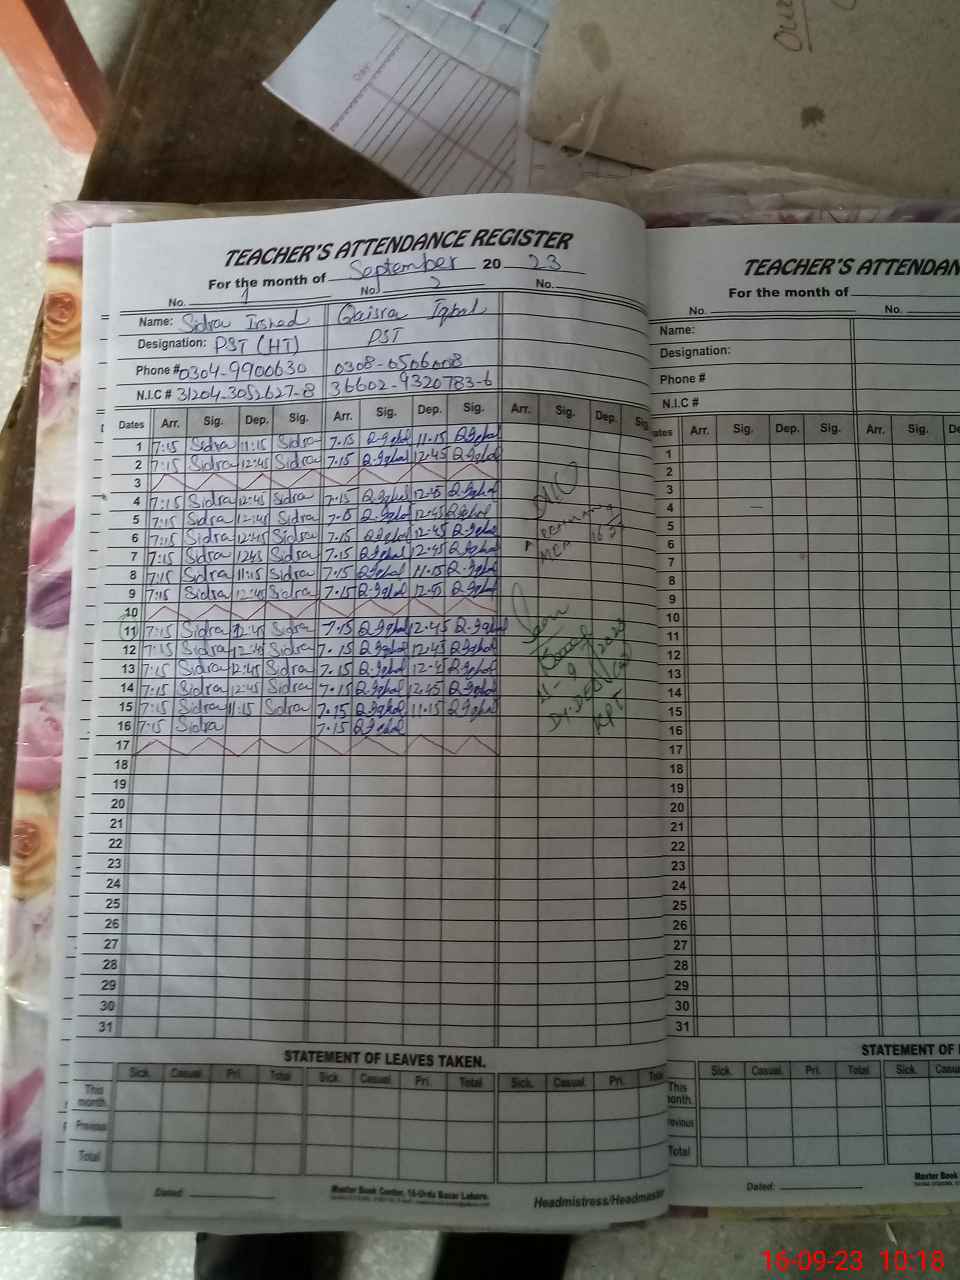 TEACHER'S ATTENDANCE REGISTER
For the month of September 20 23
No. 1 No. 2 No.
Name: Sidra Irshad Qaisra Iqbal
Designation: PST (HT) PST
Phone # 0304-9900630
N.I.C # 31204-3052627-8 36602-9320783-6
Dates Arr. Sig. Dep. Sig. Arr. Sig. Dep. Sig. Arr. Sig. Dep. Sig.
1 7:15 Sidra 11:15 Sidra 7.15 Q.Iqbal 11.15 Q.Iqbal
2 7:15 Sidra 12:45 Sidra 7.15 Q.Iqbal 12.45 Q.Iqbal
3
4 7:15 Sidra 12:45 Sidra 7.15 Q.Iqbal 12.45 Q.Iqbal
5 7:15 Sidra 12:45 Sidra 7.15 Q.Iqbal 12.45 Q.Iqbal
6 7:15 Sidra 12:45 Sidra 7.15 Q.Iqbal 12.45 Q.Iqbal
7 7:15 Sidra 12:45 Sidra 7.15 Q.Iqbal 12.45 Q.Iqbal
8 7:15 Sidra 11:15 Sidra 7.15 Q.Iqbal 11.15 Q.Iqbal
9 7:15 Sidra 12:45 Sidra 7.15 Q.Iqbal 12.45 Q.Iqbal
10
11 7:15 Sidra 12:45 Sidra 7.15 Q.Iqbal 12.45 Q.Iqbal
12 7:15 Sidra 12:45 Sidra 7.15 Q.Iqbal 12.45 Q.Iqbal
13 7:15 Sidra 12:45 Sidra 7.15 Q.Iqbal 12.45 Q.Iqbal
14 7:15 Sidra 12:45 Sidra 7.15 Q.Iqbal 12.45 Q.Iqbal
15 7:15 Sidra 11:15 Sidra 7.15 Q.Iqbal 11.15 Q.Iqbal
16 7:15 Sidra 7.15 Q.Iqbal
17
18
19
20
21
22
23
24
25
26
27
28
29
30
31
MEA
11-9
2023
STATEMENT OF LEAVES TAKEN.
Sick. Casual. Pri. Total Sick. Casual. Pri. Total Sick. Casual. Pri. Total
This month.
Previous
Total
Dated:
Master Book Center, 16-Urdu Bazar Lahore.
Headmistress/Headmaster
TEACHER'S ATTENDAN
For the month of
No. No.
Name:
Designation:
Phone #
N.I.C #
ates Arr. Sig. Dep. Sig. Arr. Sig. De
1
2
3
4
5
6
7
8
9
10
11
12
13
14
15
16
17
18
19
20
21
22
23
24
25
26
27
28
29
30
31
STATEMENT OF
Sick. Casual. Pri. Total Sick. Casu
This
month.
Previous
Total
Dated:
Master Book
16-09-23 10:18